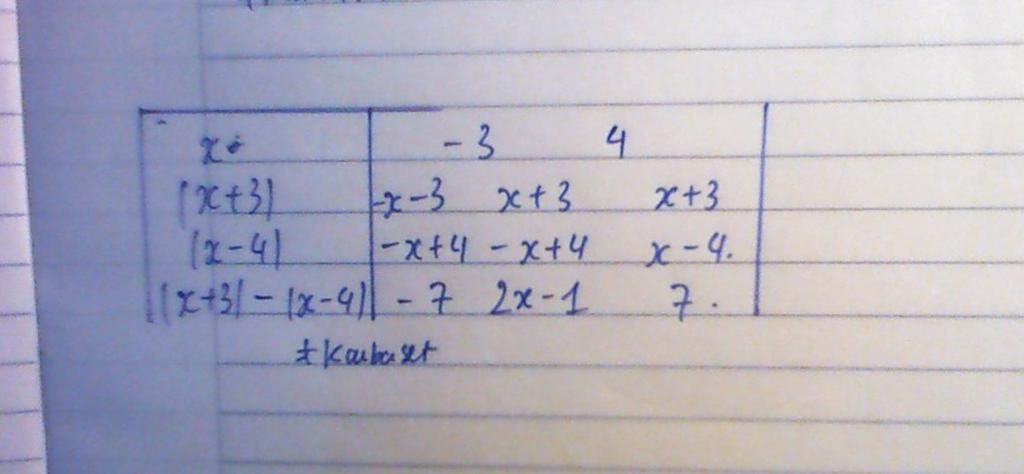 x -3 4
|x+3| -x-3 x+3 x+3
|x-4| -x+4 -x+4 x-4.
|x+3|-|x-4| -7 2x-1 7.